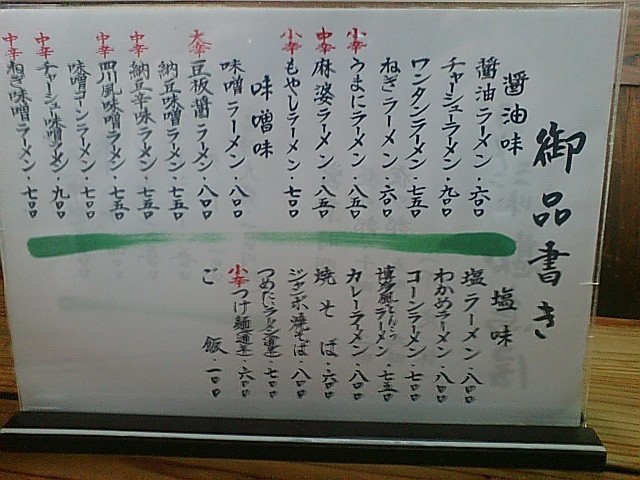 御品書き
醤油味
醤油ラーメン・六〇〇
チャーシューラーメン・九〇〇
ワンタンラーメン・七五〇
ねぎラーメン・六〇〇
小辛 うまにラーメン・八五〇
中辛 麻婆ラーメン・八五〇
小辛 もやしラーメン・七〇〇
味噌味
味噌ラーメン・八〇〇
大辛 豆板醤ラーメン・八〇〇
納豆味噌ラーメン・七五〇
中辛 納豆辛味ラーメン・七五〇
中辛 四川風味噌ラーメン・七五〇
味噌コーンラーメン・七〇〇
中辛 チャーシュー味噌ラーメン・九〇〇
中辛 ねぎ味噌ラーメン・七〇〇
塩味
塩ラーメン・八〇〇
わかめラーメン・八〇〇
コーンラーメン・七〇〇
博多風とんこつラーメン・七五〇
カレーラーメン・八〇〇
焼そば・六〇〇
ジャンボ焼そば・八〇〇
つめたいラーメン・七〇〇
小辛 つけ麺・六〇〇
ご飯・一〇〇